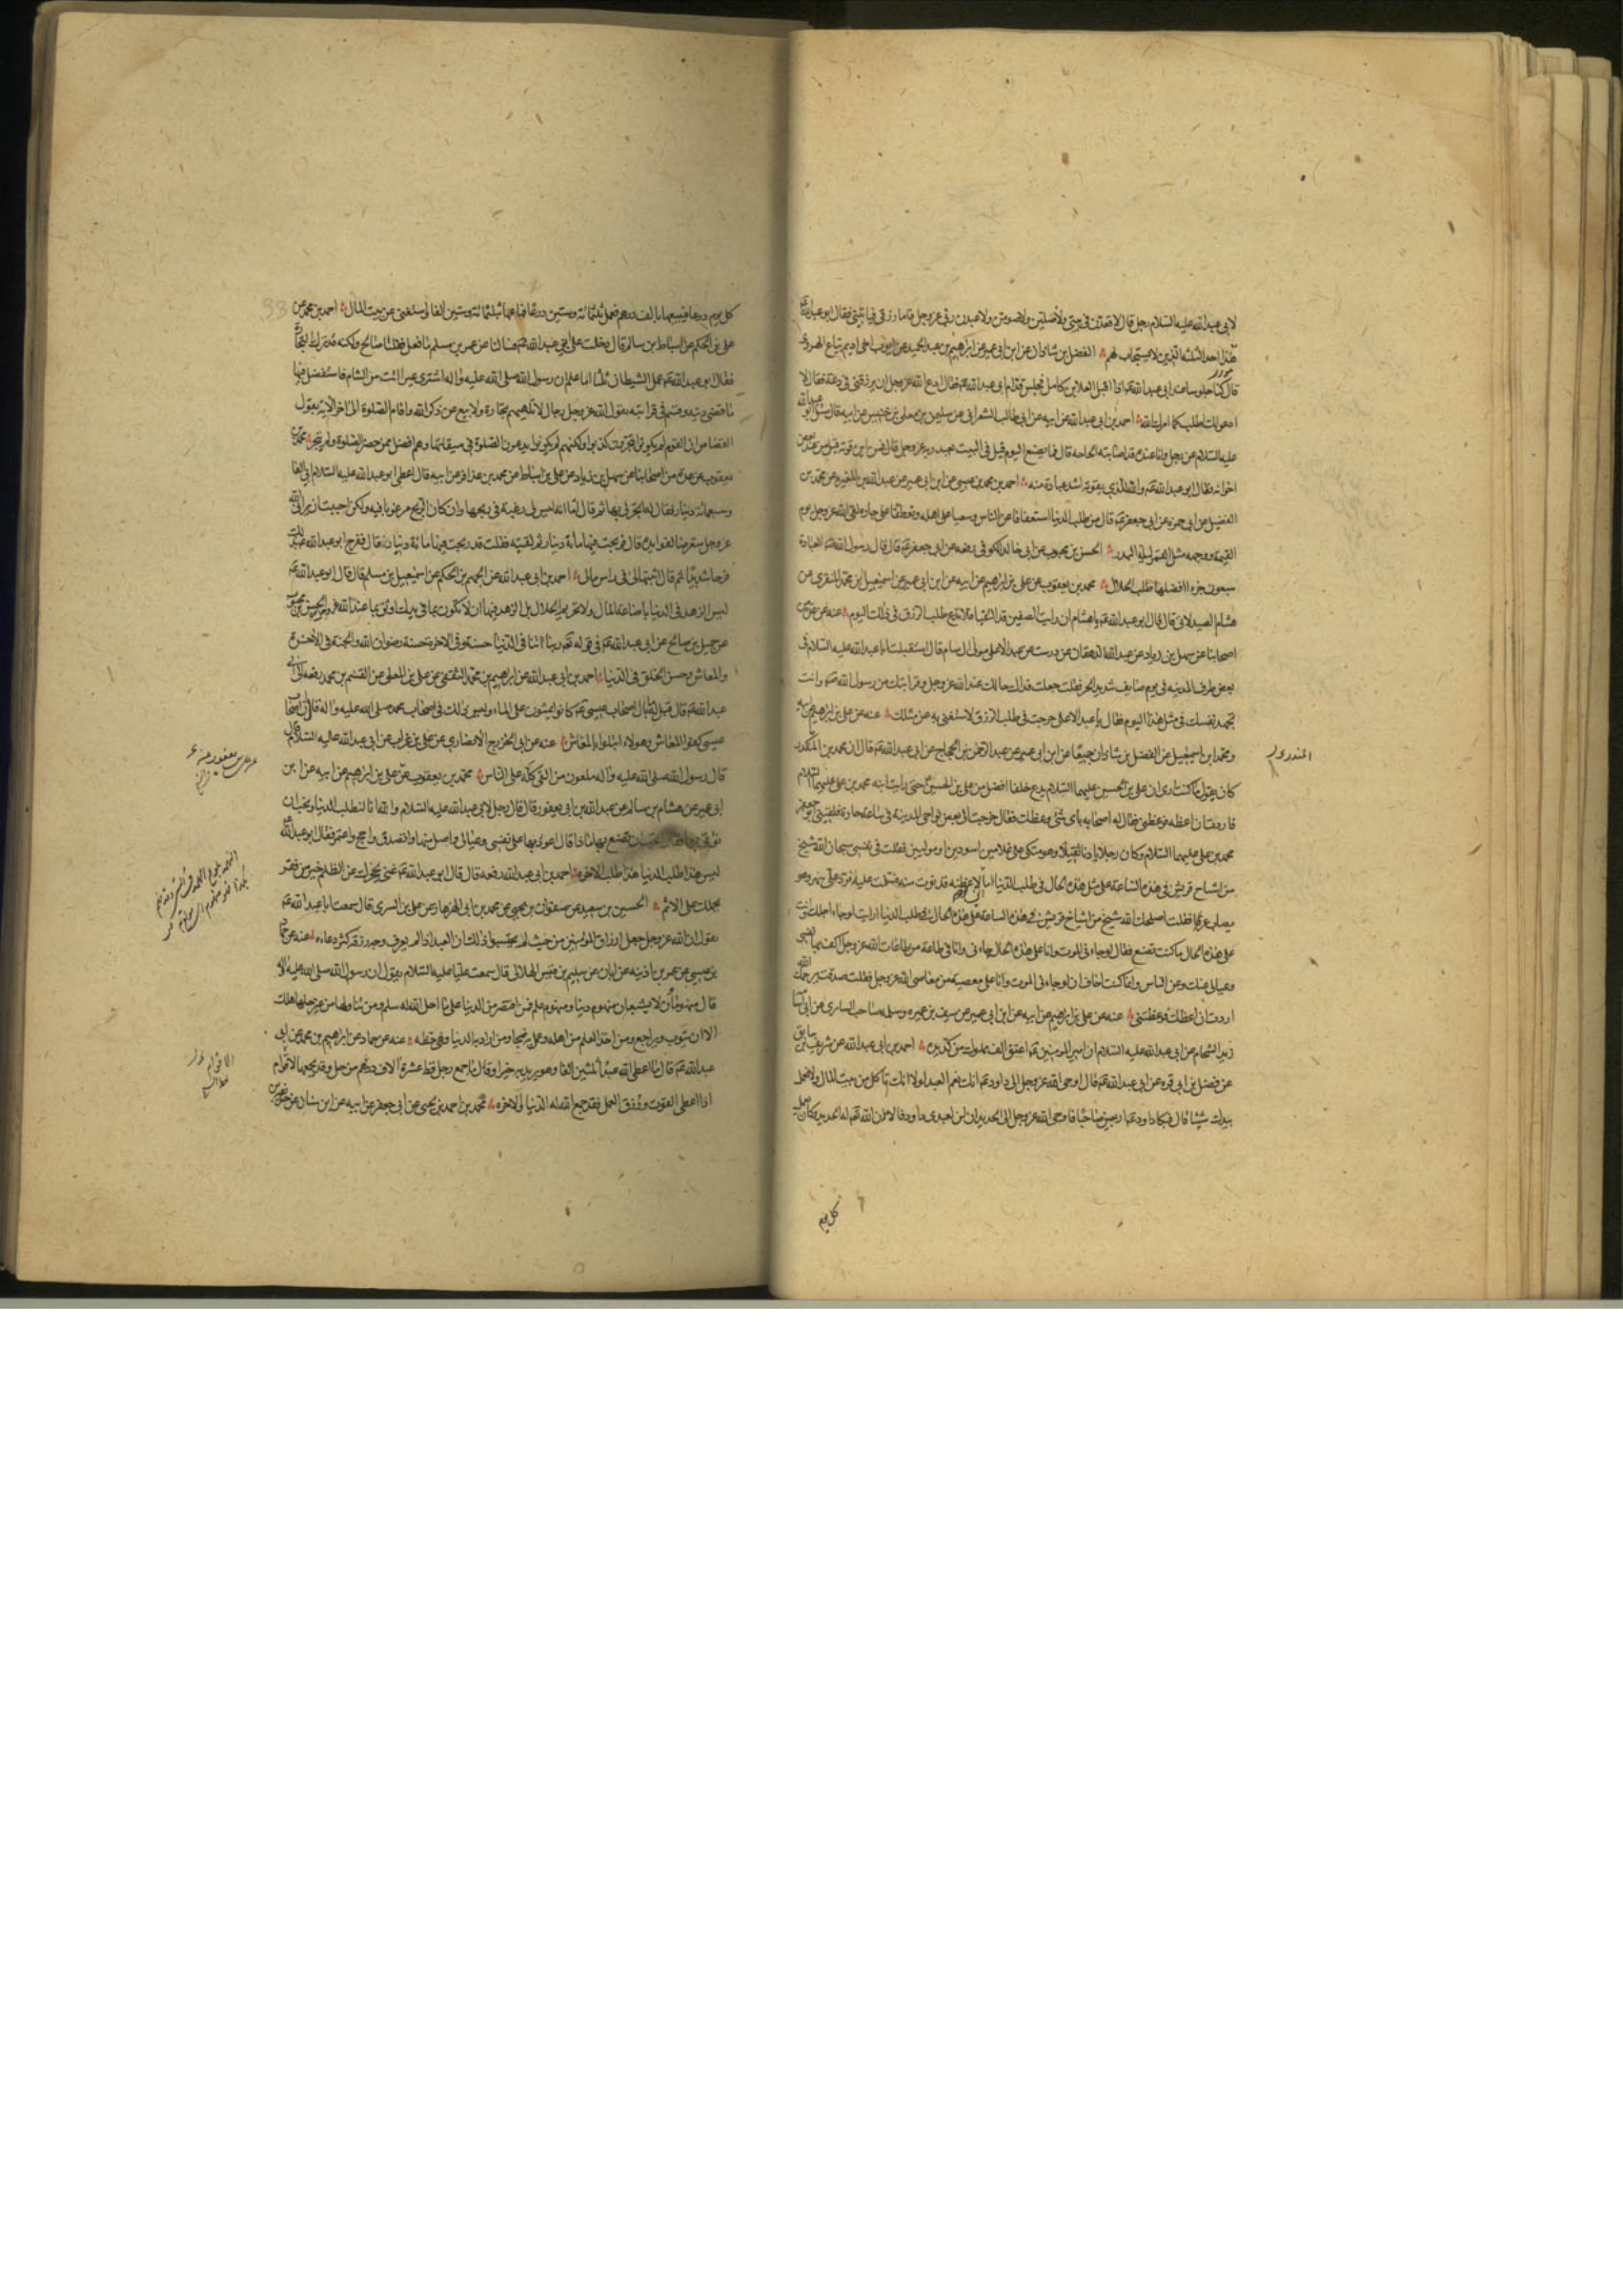 لابی عبدالله علیه السلام رجل قال لاقعدن فی بیتی ولاصلین ولاصومن ولاعبدن ربی عز وجل فاما رزقی فیاتینی فقال ابو عبدالله
هذا احد الثلثه الذین لا یستجاب لهم الفضل بن شاذان عن ابن ابی عمیر عن ابراهیم بن عبد الحمید عن ایوب اخی ادیم بیاع الهروی
قال کنا جلوسا عند ابی عبدالله اذا اقبل العلا بن کامل فجلس قدام ابی عبدالله فقال ادع الله عز وجل ان یرزقنی فی دعة فقال لا
ادعو لک اطلب کما امرک الله احمد بن ابی عبدالله عن ابیه عن ابی طالب الشعرانی عن سلیمن بن معلی بن خنیس عن ابیه قال سئل ابو عبدالله
علیه السلام عن رجل وانا عنده قد اصابته الحاجه قال فما یصنع الیوم قیل فی البیت یعبد ربه عز وجل قال فمن این قوته قیل من عند بعض
اخوانه فقال ابو عبدالله والله للذی یقوته اشد عبادة منه احمد بن محمد بن عیسی عن ابن ابی عمیر عن عبدالله بن المغیره عن محمد بن
الفضیل عن ابی حمزه عن ابی جعفر قال من طلب الدنیا استعفافا عن الناس وسعیا علی اهله وتعطفا علی جاره لقی الله عز وجل یوم
القیمه ووجهه مثل القمر لیلة البدر الحسن بن محبوب عن ابی خالد الکوفی رفعه عن ابی جعفر قال قال رسول الله العبادة
سبعون جزءا افضلها طلب الحلال محمد بن یعقوب عن علی بن ابراهیم عن ابیه عن ابن ابی عمیر عن اسمعیل بن محمد المنقری عن
هشام الصیدلانی قال قال ابو عبدالله یا هشام ان رایت الصفین قد التقیا فلا تدع طلب الرزق فی ذلک الیوم عنه عن عدة من
اصحابنا عن سهل بن زیاد عن عبدالله الدهقان عن درست عن عبد الاعلی مولی ال سام قال استقبلت ابا عبدالله علیه السلام فی
بعض طرق المدینه فی یوم صایف شدید الحر فقلت جعلت فداک حالک عند الله عز وجل وقرابتک من رسول الله وانت
تجهد نفسک فی مثل هذا الیوم فقال یا عبد الاعلی خرجت فی طلب الرزق لاستغنی به عن مثلک عنه عن علی بن ابراهیم عن ابیه
ومحمد بن اسمعیل عن الفضل بن شاذان جمیعا عن ابن ابی عمیر عن عبد الرحمن بن الحجاج عن ابی عبدالله قال ان محمد بن المنکدر
کان یقول ما کنت اری ان علی بن الحسین علیهما السلام یدع خلفا افضل من علی بن الحسین حتی رایت ابنه محمد بن علی علیهما السلام
فاردت ان اعظه فوعظنی فقال له اصحابه بای شیء وعظک فقال خرجت الی بعض نواحی المدینه فی ساعة حارة فلقینی ابو جعفر
محمد بن علی علیهما السلام وکان رجلا بادنا ثقیلا وهو متکی علی غلامین اسودین او مولیین فقلت فی نفسی سبحان الله شیخ
من اشیاخ قریش فی هذه الساعة علی مثل هذه الحال فی طلب الدنیا اما لاعظنه فدنوت منه فسلمت علیه فرد علی بنهر وهو
یتصاب عرقا فقلت اصلحک الله شیخ من اشیاخ قریش فی هذه الساعة علی هذه الحال فی طلب الدنیا ارایت لو جاء اجلک وانت
علی هذه الحال ما کنت تصنع فقال لو جاءنی الموت وانا علی هذه الحال جاءنی وانا فی طاعة من طاعات الله عز وجل اکف بها نفسی
وعیالی عنک وعن الناس وانما کنت اخاف ان لو جاءنی الموت وانا علی معصیة من معاصی الله عز وجل فقلت صدقت یرحمک الله
اردت ان اعظک فوعظتنی عنه عن علی بن ابراهیم عن ابیه عن ابن ابی عمیر عن سیف بن عمیره وسلمه صاحب السابری عن ابی اسامه
زید الشحام عن ابی عبدالله علیه السلام ان امیر المومنین اعتق الف مملوک من کد یده احمد بن ابی عبدالله عن شریف بن سابق
عن فضل بن ابی قره عن ابی عبدالله قال اوحی الله عز وجل الی داود انک نعم العبد لولا انک تاکل من بیت المال ولا تعمل
بیدک شیئا قال فبکا داود اربعین صباحا فاوحی الله عز وجل الی الحدید ان لن لعبدی داود فالان الله له الحدید فکان یعمل
کل یوم
کل یوم درعا فیبیعها بالف درهم فعمل ثلثمائة وستین درعا فباعها بثلثمائة وستین الفا واستغنی عن بیت المال احمد بن محمد عن
علی بن الحکم عن اسباط بن سالم قال دخلت علی ابی عبدالله فسالنا عن عمر بن مسلم ما فعل فقلت صالح ولکنه قد ترک التجارة
فقال ابو عبدالله عمل الشیطان ثلثا اما علم ان رسول الله صلی الله علیه واله اشتری عیرا اتت من الشام فاستفضل فیها
ما قضی دینه وقسم فی قرابته یقول الله عز وجل رجال لا تلهیهم تجارة ولا بیع عن ذکر الله واقام الصلوة الی اخر الایة یقول
القصاص ان القوم لم یکونوا یتجرون کذبوا ولکنهم لم یکونوا یدعون الصلوة فی میقاتها وهم افضل ممن حضر الصلوة ولم یتجر محمد بن
یعقوب عن عدة من اصحابنا عن سهل بن زیاد عن علی بن اسباط عن محمد بن عذافر عن ابیه قال اعطی ابو عبدالله علیه السلام ابی الفا
وسبعمائة دینار فقال له اتجر لی بها ثم قال اما انه لیس لی رغبة فی ربحها وان کان الربح مرغوبا فیه ولکن احببت ان یرانی الله
عز وجل متعرضا لفوایده قال فربحت فیها مائة دینار ثم لقیته فقلت قد ربحت فیها مائة دینار قال ففرح ابو عبدالله بذلک
فرحا شدیدا ثم قال اثبتها لی فی راس مالی احمد بن ابی عبدالله عن الجهم بن الحکم عن اسمعیل بن مسلم قال قال ابو عبدالله
لیس الزهد فی الدنیا باضاعة المال ولا تحریم الحلال بل الزهد فیها ان لا تکون بما فی یدک اوثق بما عند الله الحسن بن محبوب
عن جمیل بن صالح عن ابی عبدالله فی قوله ربنا اتنا فی الدنیا حسنة وفی الاخرة حسنة رضوان الله والجنة فی الاخرة
والمعاش وحسن الخلق فی الدنیا احمد بن ابی عبدالله عن ابراهیم بن محمد الثقفی عن علی بن المعلی عن القسم بن محمد رفعه الی ابی
عبدالله قال قیل له ما بال اصحاب عیسی کانوا یمشون علی الماء ولیس ذلک فی اصحاب محمد صلی الله علیه واله قال ان اصحاب
عیسی کفوا المعاش وهولاء ابتلوا بالمعاش عنه عن ابی الخزرج الانصاری عن علی بن غراب عن ابی عبدالله علیه السلام قال
قال رسول الله صلی الله علیه واله ملعون من القی کله علی الناس محمد بن یعقوب عن علی بن ابراهیم عن ابیه عن ابن
ابی عمیر عن هشام بن سالم عن عبدالله بن ابی یعفور قال قال رجل لابی عبدالله علیه السلام والله انا لنطلب الدنیا ونحب ان
نوتی بها فقال تحب ان تصنع بها ماذا قال اعود بها علی نفسی وعیالی واصل منها واتصدق واحج واعتمر فقال ابو عبدالله
لیس هذا طلب الدنیا هذا طلب الاخره احمد بن ابی عبدالله رفعه قال قال ابو عبدالله غنی یحجزک عن الظلم خیر من فقر
یحملک علی الاثم الحسین بن سعید عن صفوان بن یحیی عن محمد بن ابی الهزهاز عن علی بن السری قال سمعت ابا عبدالله
یقول ان الله عز وجل جعل ارزاق المومنین من حیث لم یحتسبوا وذلک ان العبد اذا لم یعرف وجه رزقه کثر دعاءه عنه عن حماد
بن عیسی عن عمر بن اذینه عن ابان عن سلیم بن قیس الهلالی قال سمعت علیا علیه السلام یقول ان رسول الله صلی الله علیه واله
قال منهومان لا یشبعان منهوم دنیا ومنهوم علم فمن اقتصر من الدنیا علی ما احل الله له سلم ومن تناولها من غیر حلها هلک
الا ان یتوب ویراجع ومن اخذ العلم من اهله وعمل به نجا ومن اراد به الدنیا فهی حظه عنه عن حماد عن ابراهیم بن محمد عن ابی
عبدالله قال ما اعطی الله عبدا ثلثین الفا وهو یرید به خیرا وقال ما جمع رجل قط عشرة الاف درهم من حل وقد یجمعها لاقوام
اذا اعطی القوت ورزق العمل فقد جمع الله له الدنیا والاخره محمد بن احمد بن یحیی عن ابی جعفر عن ابیه عن ابن سنان عن